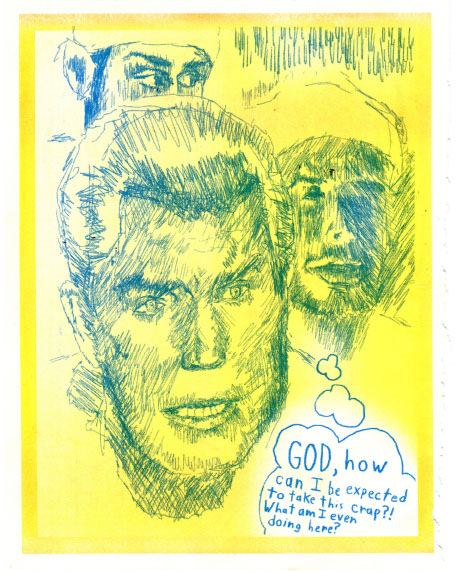 GOD, how
can I be expected
to take this crap?!
What am I even
doing here?